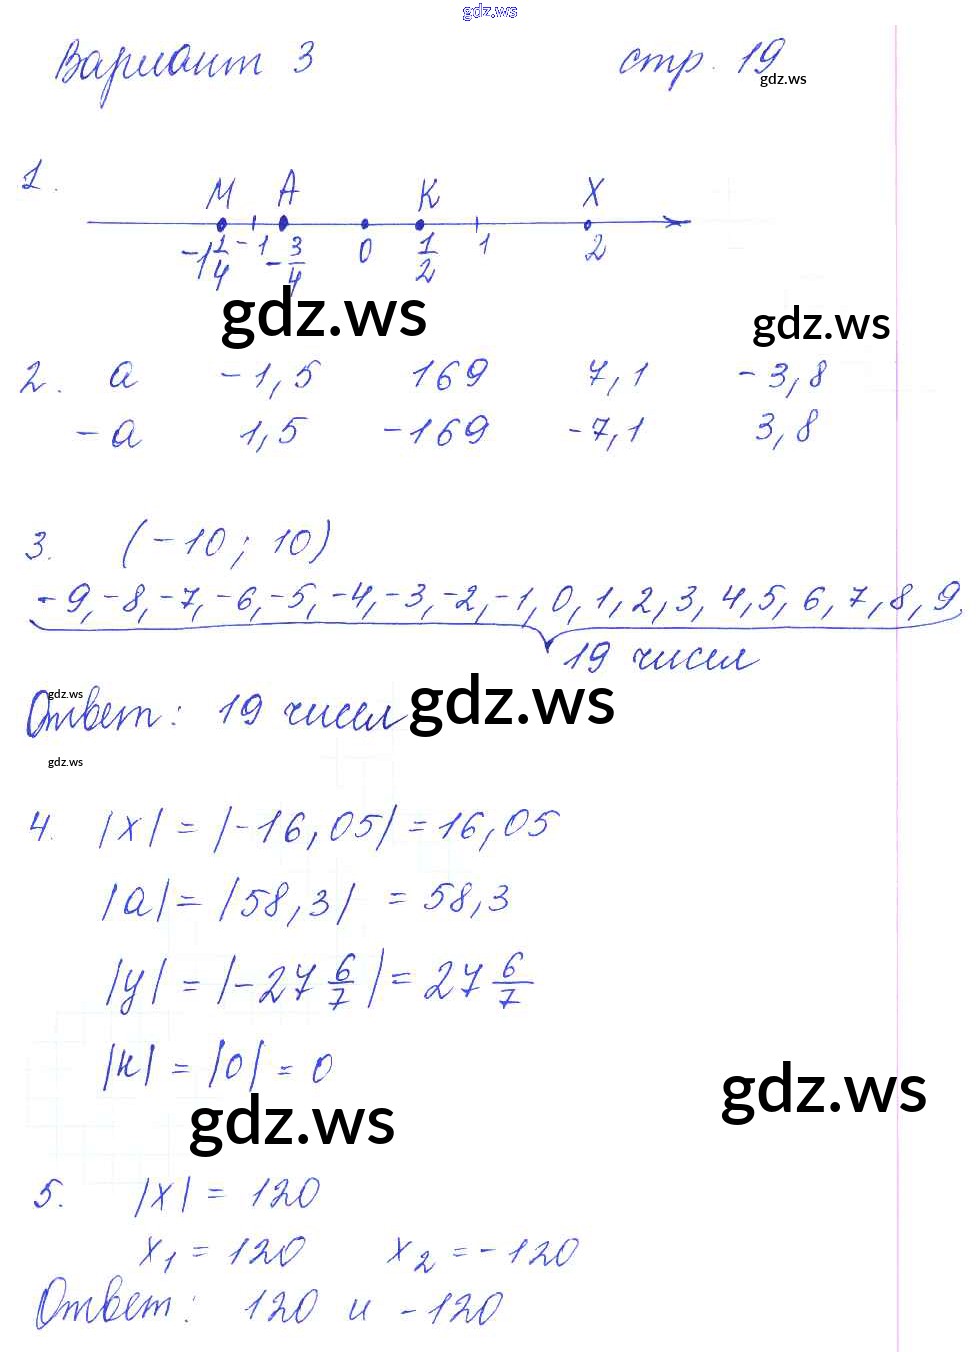 gdz.ws
Вариант 3 стр. 19
gdz.ws
1.
M A K X
-1 1/4 -1 -3/4 0 1/2 1 2
gdz.ws
gdz.ws
2. a -1,5 169 7,1 -3,8
-a 1,5 -169 -7,1 3,8
3. (-10; 10)
-9, -8, -7, -6, -5, -4, -3, -2, -1, 0, 1, 2, 3, 4, 5, 6, 7, 8, 9,
19 чисел
gdz.ws
Ответ: 19 чисел
gdz.ws
gdz.ws
4. |x| = |-16,05| = 16,05
|a| = |58,3| = 58,3
|y| = |-27 6/7| = 27 6/7
|к| = |0| = 0
gdz.ws
gdz.ws
5. |x| = 120
x1 = 120 x2 = -120
Ответ: 120 и -120